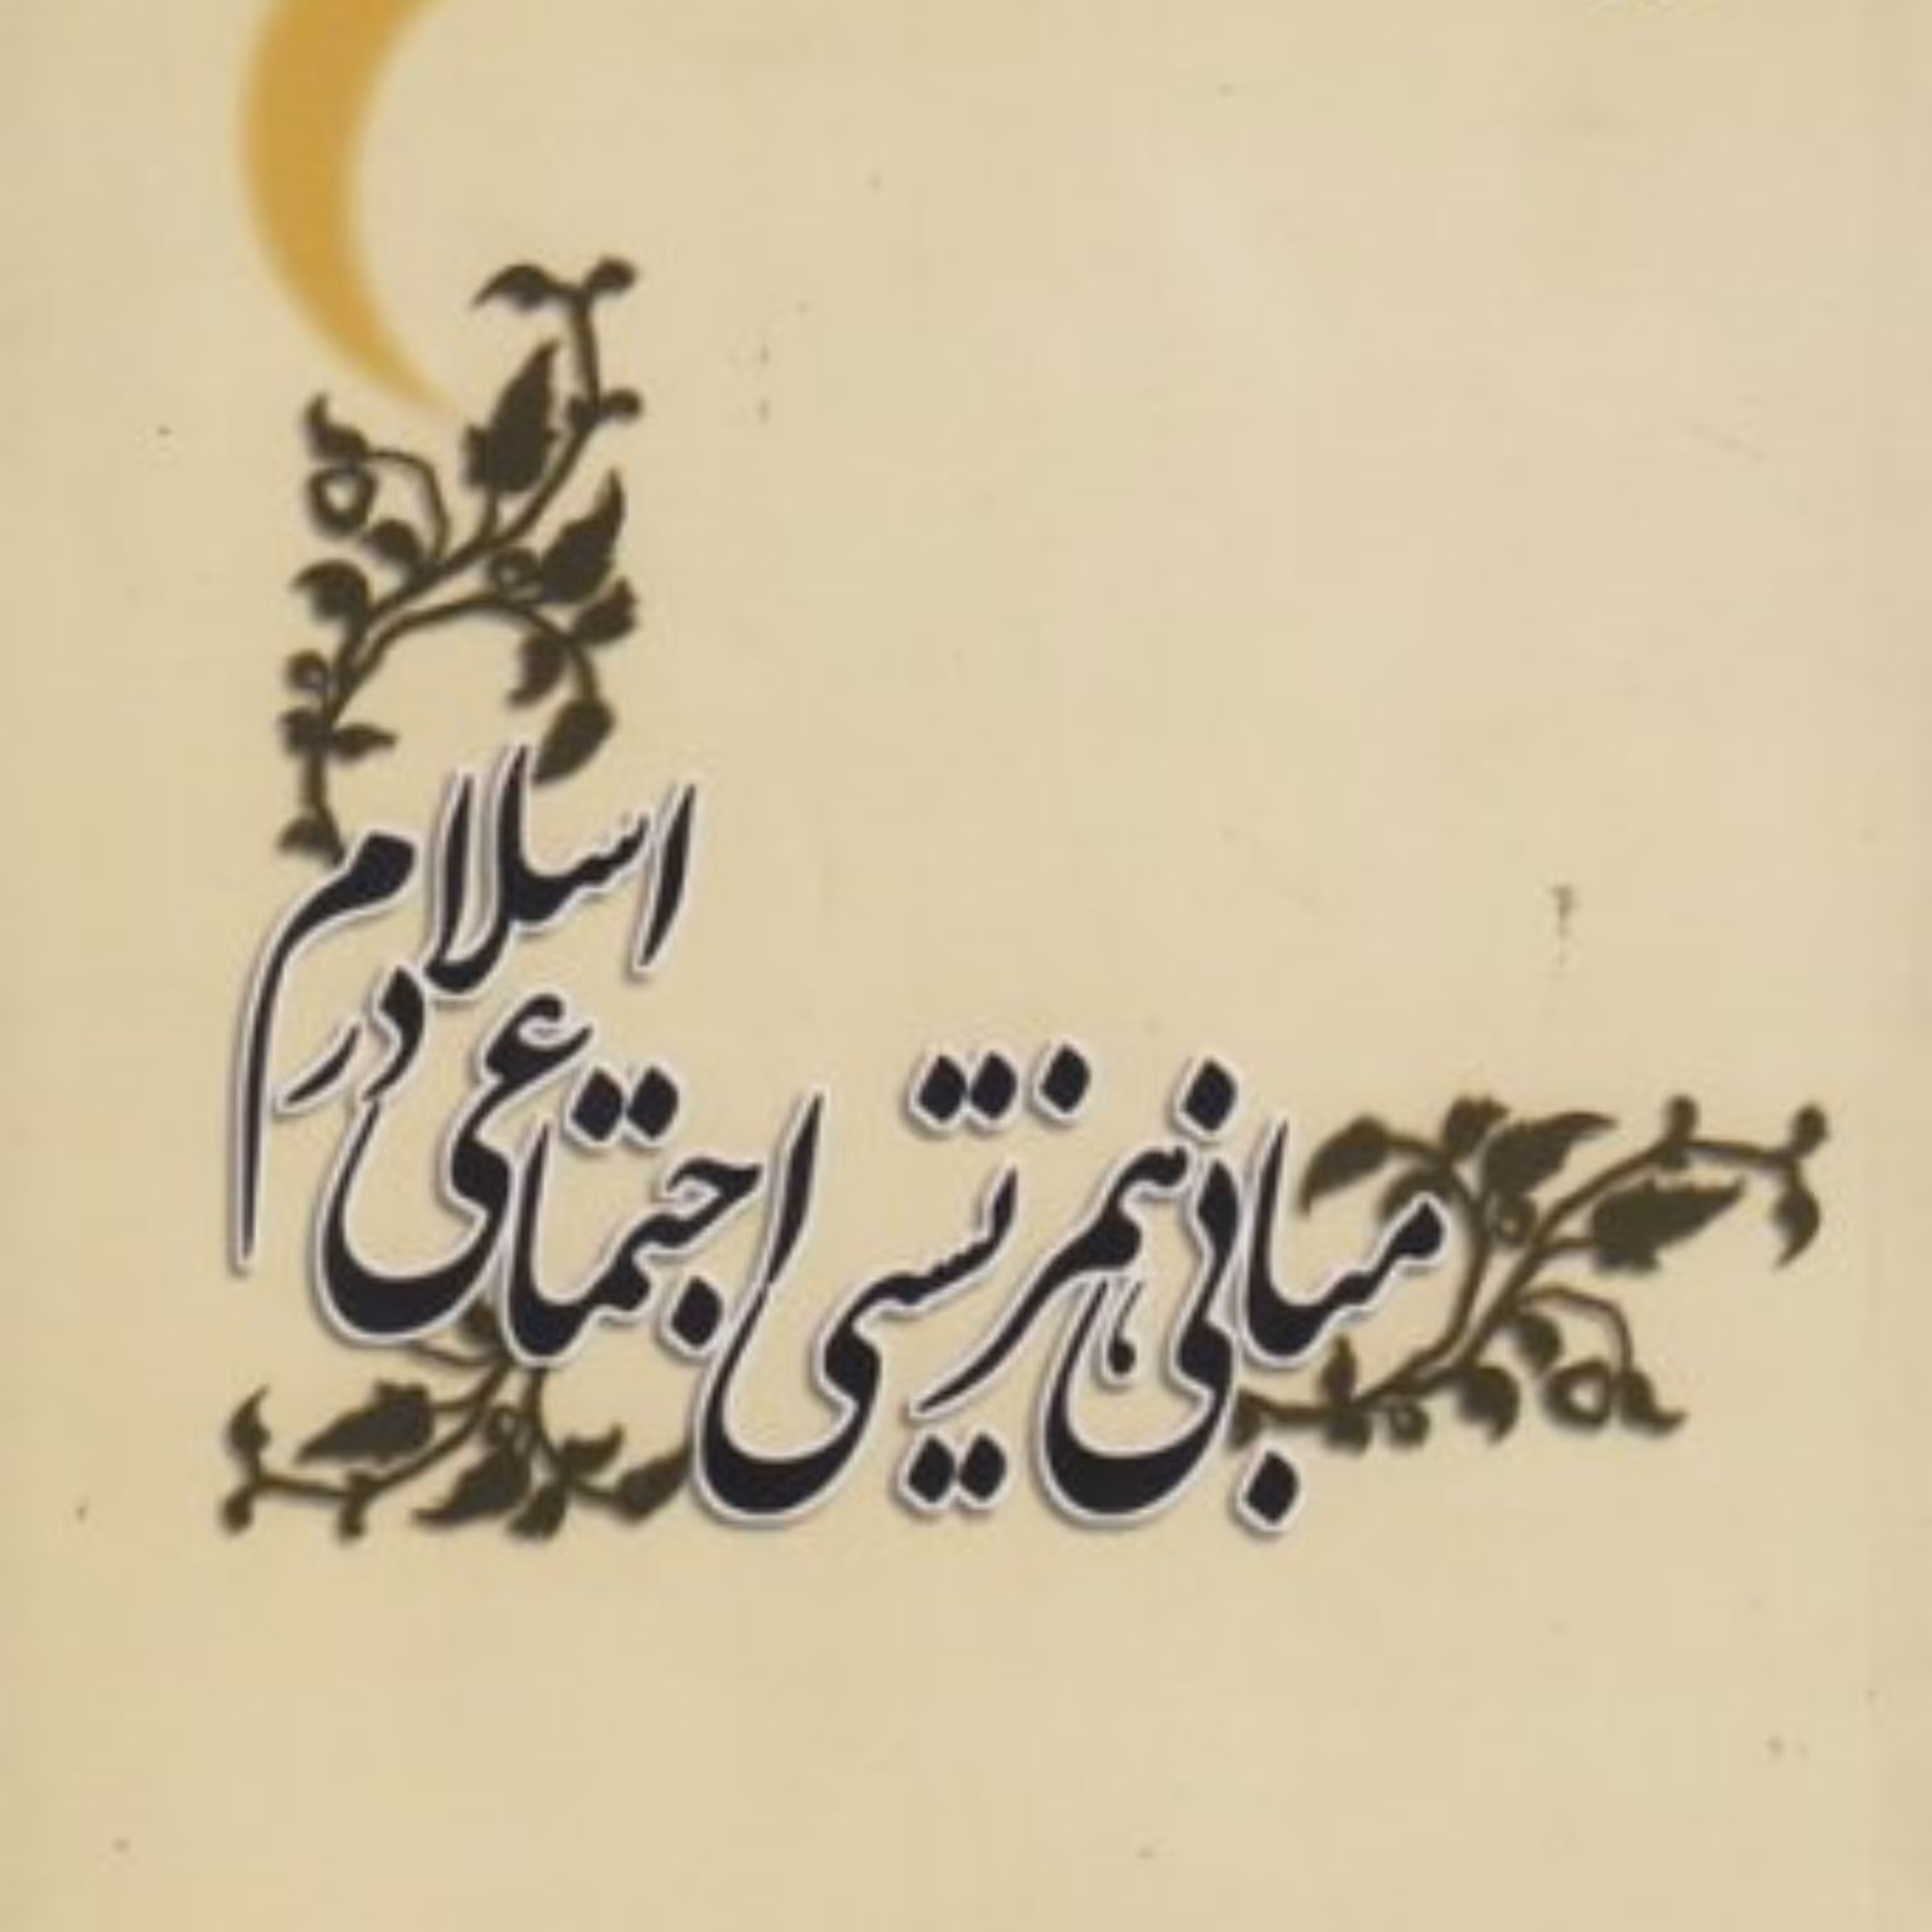 مبانی همزیستی اجتماعی در اسلام